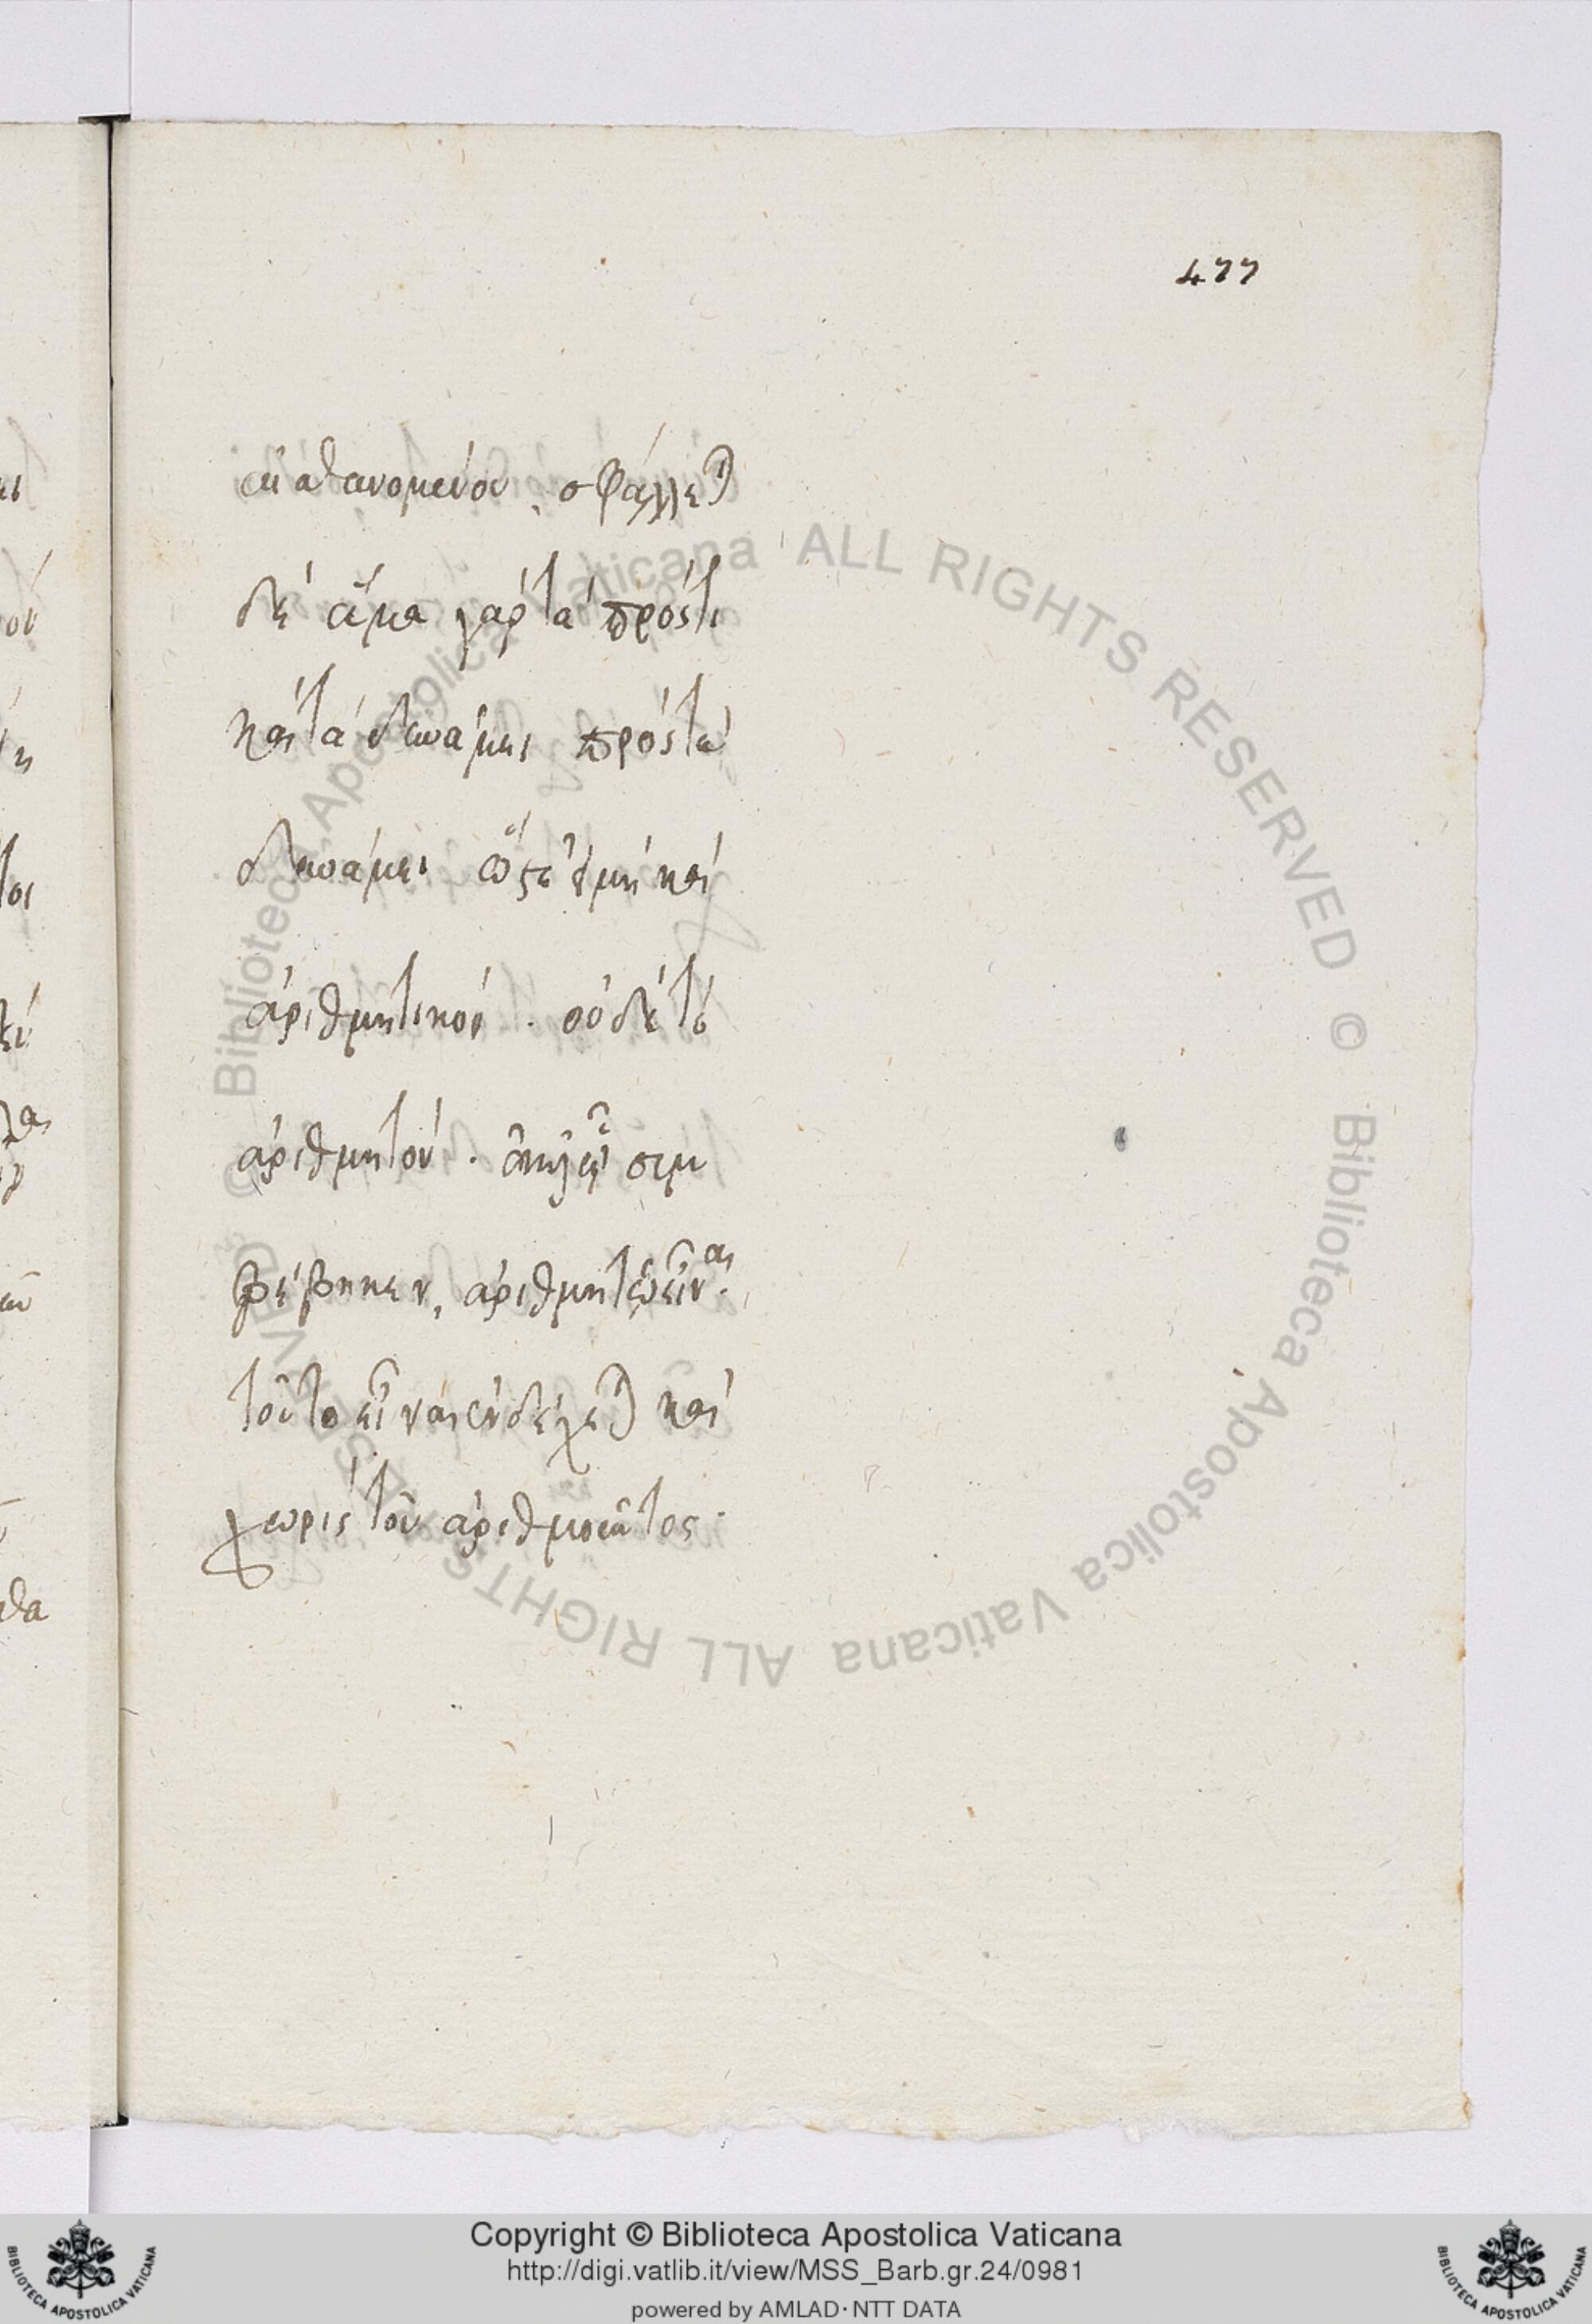 477
αἰσθανομένου, σφάλλεται
δέ ἅμα γάρ τά πρός τι
καί τά δυνάμει πρός τά
δυνάμει ὥστε εἰ μή καί
ἀριθμητικόν . οὐδέ τό
ἀριθμητόν . ἀλλ' ᾧ συμ
βέβηκεν, ἀριθμητῷ εἶναι.
τοῦτο εἶναι ἐνδέχεται καί
χωρίς τοῦ ἀριθμοῦντος.
© Biblioteca Apostolica Vaticana ALL RIGHTS RESERVED © Biblioteca Apostolica Vaticana ALL RIGHTS RESERVED
Copyright © Biblioteca Apostolica Vaticana
http://digi.vatlib.it/view/MSS_Barb.gr.24/0981
powered by AMLAD·NTT DATA
BIBLIOTECA APOSTOLICA VATICANA
BIBLIOTECA APOSTOLICA VATICANA